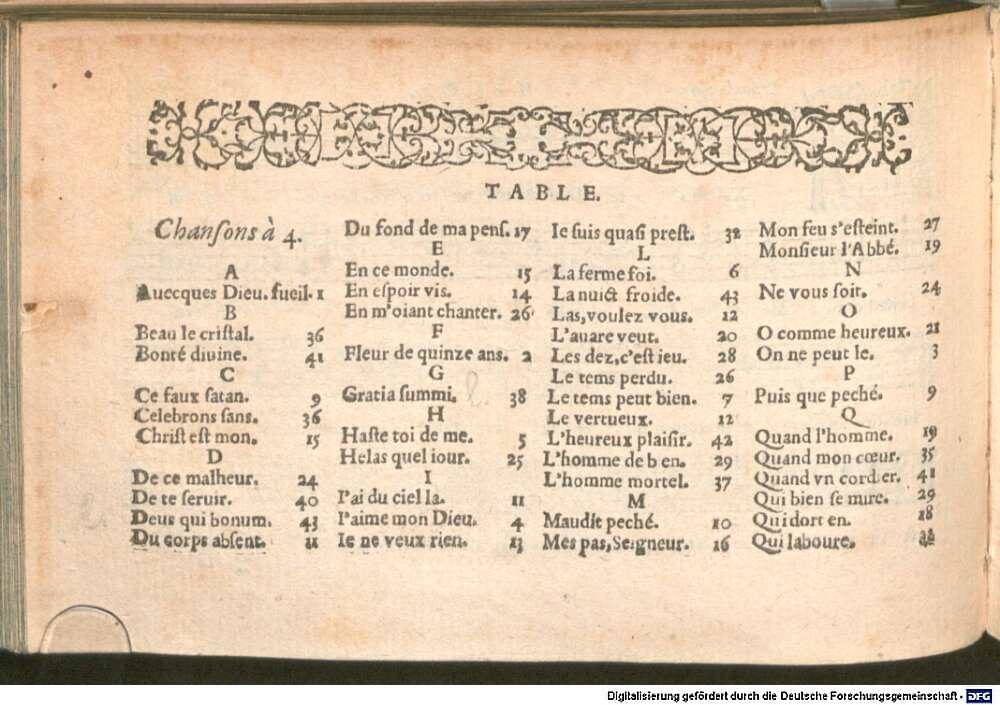 TABLE.
Chanſons à 4.
A
Auecques Dieu. fueil. 1
B
Beau le criſtal. 36
Bonté diuine. 41
C
Ce faux ſatan. 9
Celebrons ſans. 36
Chriſt eſt mon. 15
D
De ce malheur. 24
De te ſeruir. 40
Deus qui bonum. 43
Du corps abſent. 11
Du fond de ma penſ. 17
E
En ce monde. 15
En eſpoir vis. 14
En m'oiant chanter. 26
F
Fleur de quinze ans. 2
G
Gratia ſummi. 38
H
Haſte toi de me. 5
Helas quel iour. 25
I
I'ai du ciel la. 11
I'aime mon Dieu. 4
Ie ne veux rien. 13
Ie ſuis quaſi preſt. 32
L
La ferme foi. 6
La nuict froide. 43
Las, voulez vous. 12
L'auare veut. 20
Les dez, c'eſt ieu. 28
Le tems perdu. 26
Le tems peut bien. 7
Le vertueux. 12
L'heureux plaiſir. 42
L'homme de b en. 29
L'homme mortel. 37
M
Maudit peché. 10
Mes pas, Seigneur. 16
Mon feu s'eſteint. 27
Monſieur l'Abbé. 19
N
Ne vous ſoit. 24
O
O comme heureux. 21
On ne peut le. 3
P
Puis que peché. 9
Q
Quand l'homme. 19
Quand mon cœur. 35
Quand vn cordier. 41
Qui bien ſe mire. 29
Qui dort en. 18
Qui laboure.
Digitalisierung gefördert durch die Deutsche Forschungsgemeinschaft - DFG